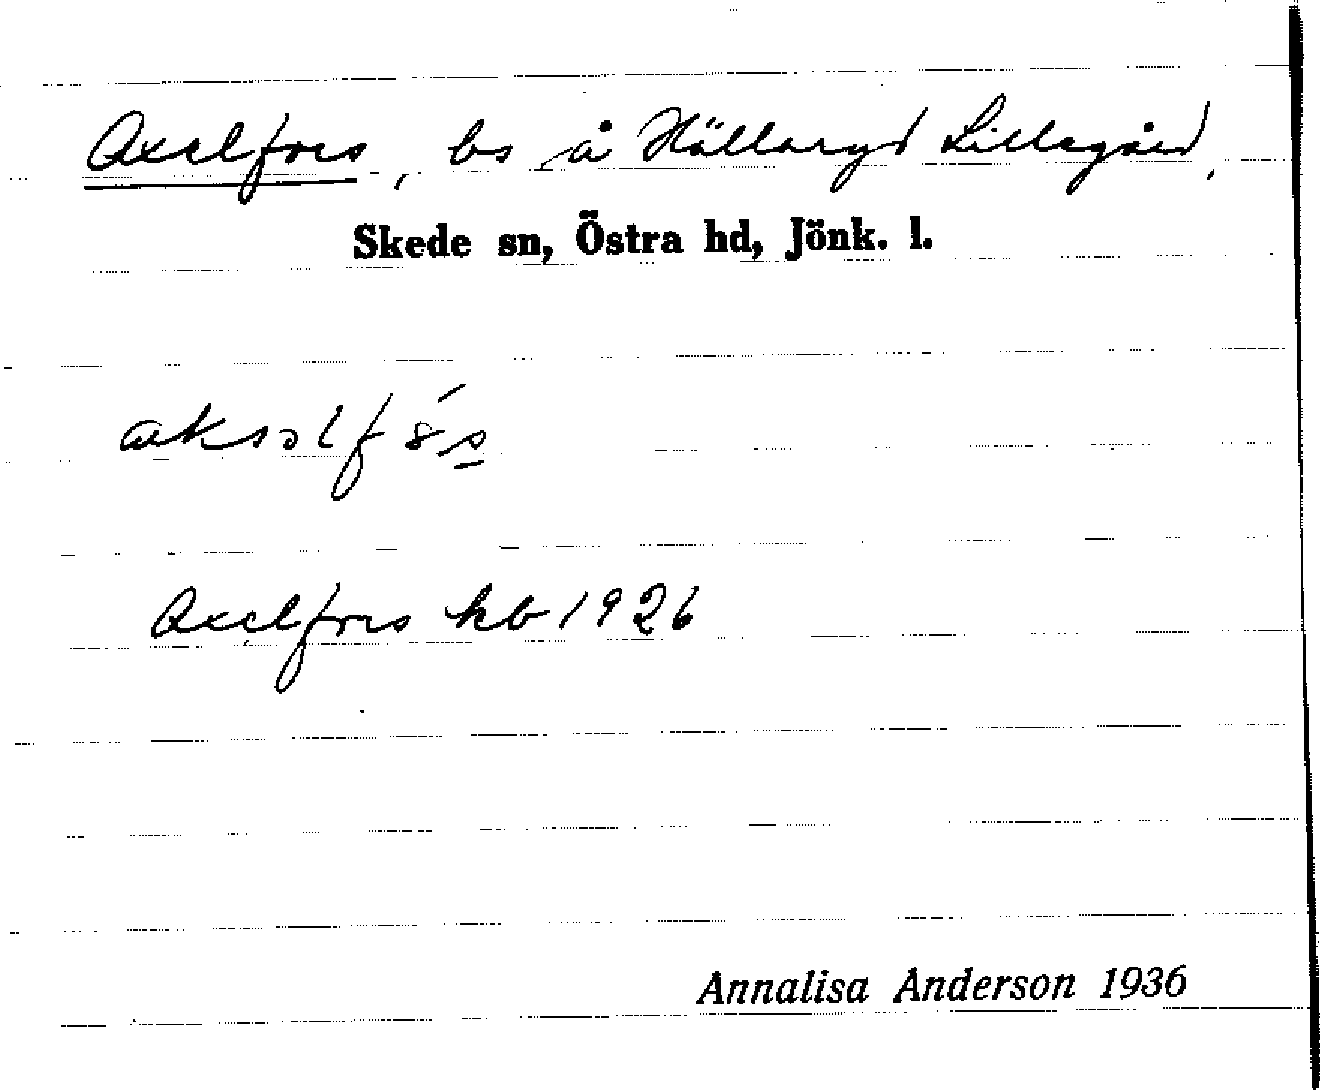 Axelfors, bs å Hällaryd Lillegård,
Skede sn, Östra hd, Jönk. l.
Axelfors kb 1926
Annalisa Anderson 1936